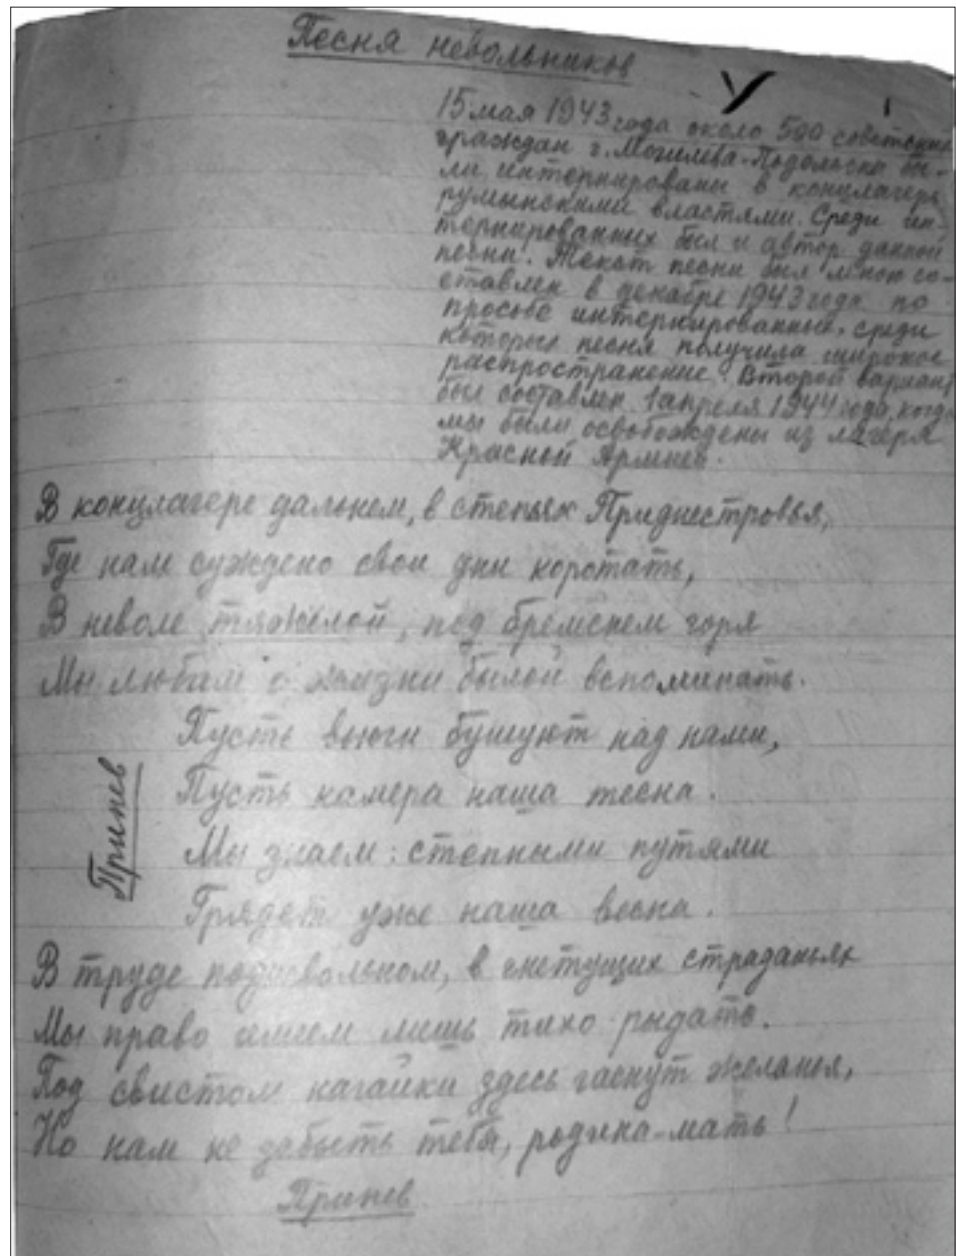 Песня невольников
15 мая 1943 года около 500 советских
граждан г. Могилёва-Подольска бы-
ли интернированы в концлагерь
румынскими властями. Среди ин-
тернированных был и автор данной
песни. Текст песни был мною со-
ставлен в декабре 1943 года по
просьбе интернированных, среди
которых песня получила широкое
распространение. Второй вариант
был составлен 1 апреля 1944 года, когда
мы были освобождены из лагеря
Красной Армией.
В концлагере дальнем, в степях Приднестровья,
Где нам суждено свои дни коротать,
В неволе тяжёлой, под бременем горя
Мы любим о жизни былой вспоминать.
Припев
Пусть вьюги бушуют над нами,
Пусть камера наша тесна.
Мы знаем: степными путями
Грядёт уже наша весна.
В труде подневольном, в гнетущих страданьях
Мы право имеем лишь тихо рыдать.
Под свистом нагайки здесь гаснут желанья,
Но нам не забыть тебя, родина-мать!
Припев